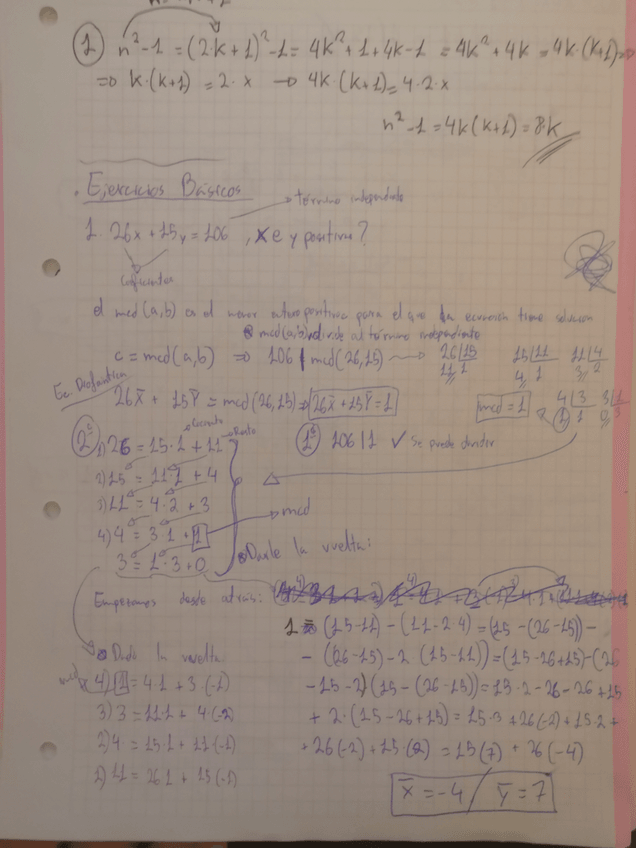 1 n²-1 = (2k+1)²-1 = 4k²+1+4k-1 = 4k²+4k = 4k·(k+1) ⇒
⇒ k·(k+1) = 2·x → 4k·(k+1) = 4·2·x
n²-1 = 4k(k+1) = 8·k
Ejercicios Básicos
→ término independiente
1. 26x + 15y = 106, x e y positivos?
Coeficientes
el mcd(a,b) es el menor entero positivo para el que la ecuación tiene solución
mcd(a,b) divide al término independiente
c = mcd(a,b) ⇒ 106 | mcd(26,15) → 26 | 15 15 | 11 11 | 4
11 1 4 1 3 2
Ec. Diofántica
26x̄ + 15ȳ = mcd(26,15) ⇒ 26x̄ + 15ȳ = 1 mcd = 1 4 | 3 3 | 1
1 1 0 3
Cociente Resto
2º 1) 26 = 15·1 + 11 1º 106 | 1 ✓ Se puede dividir
2) 15 = 11·1 + 4
3) 11 = 4·2 + 3
4) 4 = 3·1 + 1 → mcd
3 = 1·3 + 0 Darle la vuelta:
Empezamos desde atrás:
1 = (15-11) - (11-2·4) = (15 - (26-15)) -
Dado la vuelta: - (26-15) - 2 (15-11)) = (15-26+15) - (26
mcd 4) 1 = 4·1 + 3(-1) -15-2)(15 - (26-15)) = 15·2-26-26+15
3) 3 = 11·1 + 4(-2) + 2·(15-26+15) = 15·3+26(-2)+15·2+
2) 4 = 15·1 + 11(-1) + 26(-2) + 15·(2) = 15(7) + 26(-4)
1) 11 = 26·1 + 15(-1)
x̄ = -4 / ȳ = 7